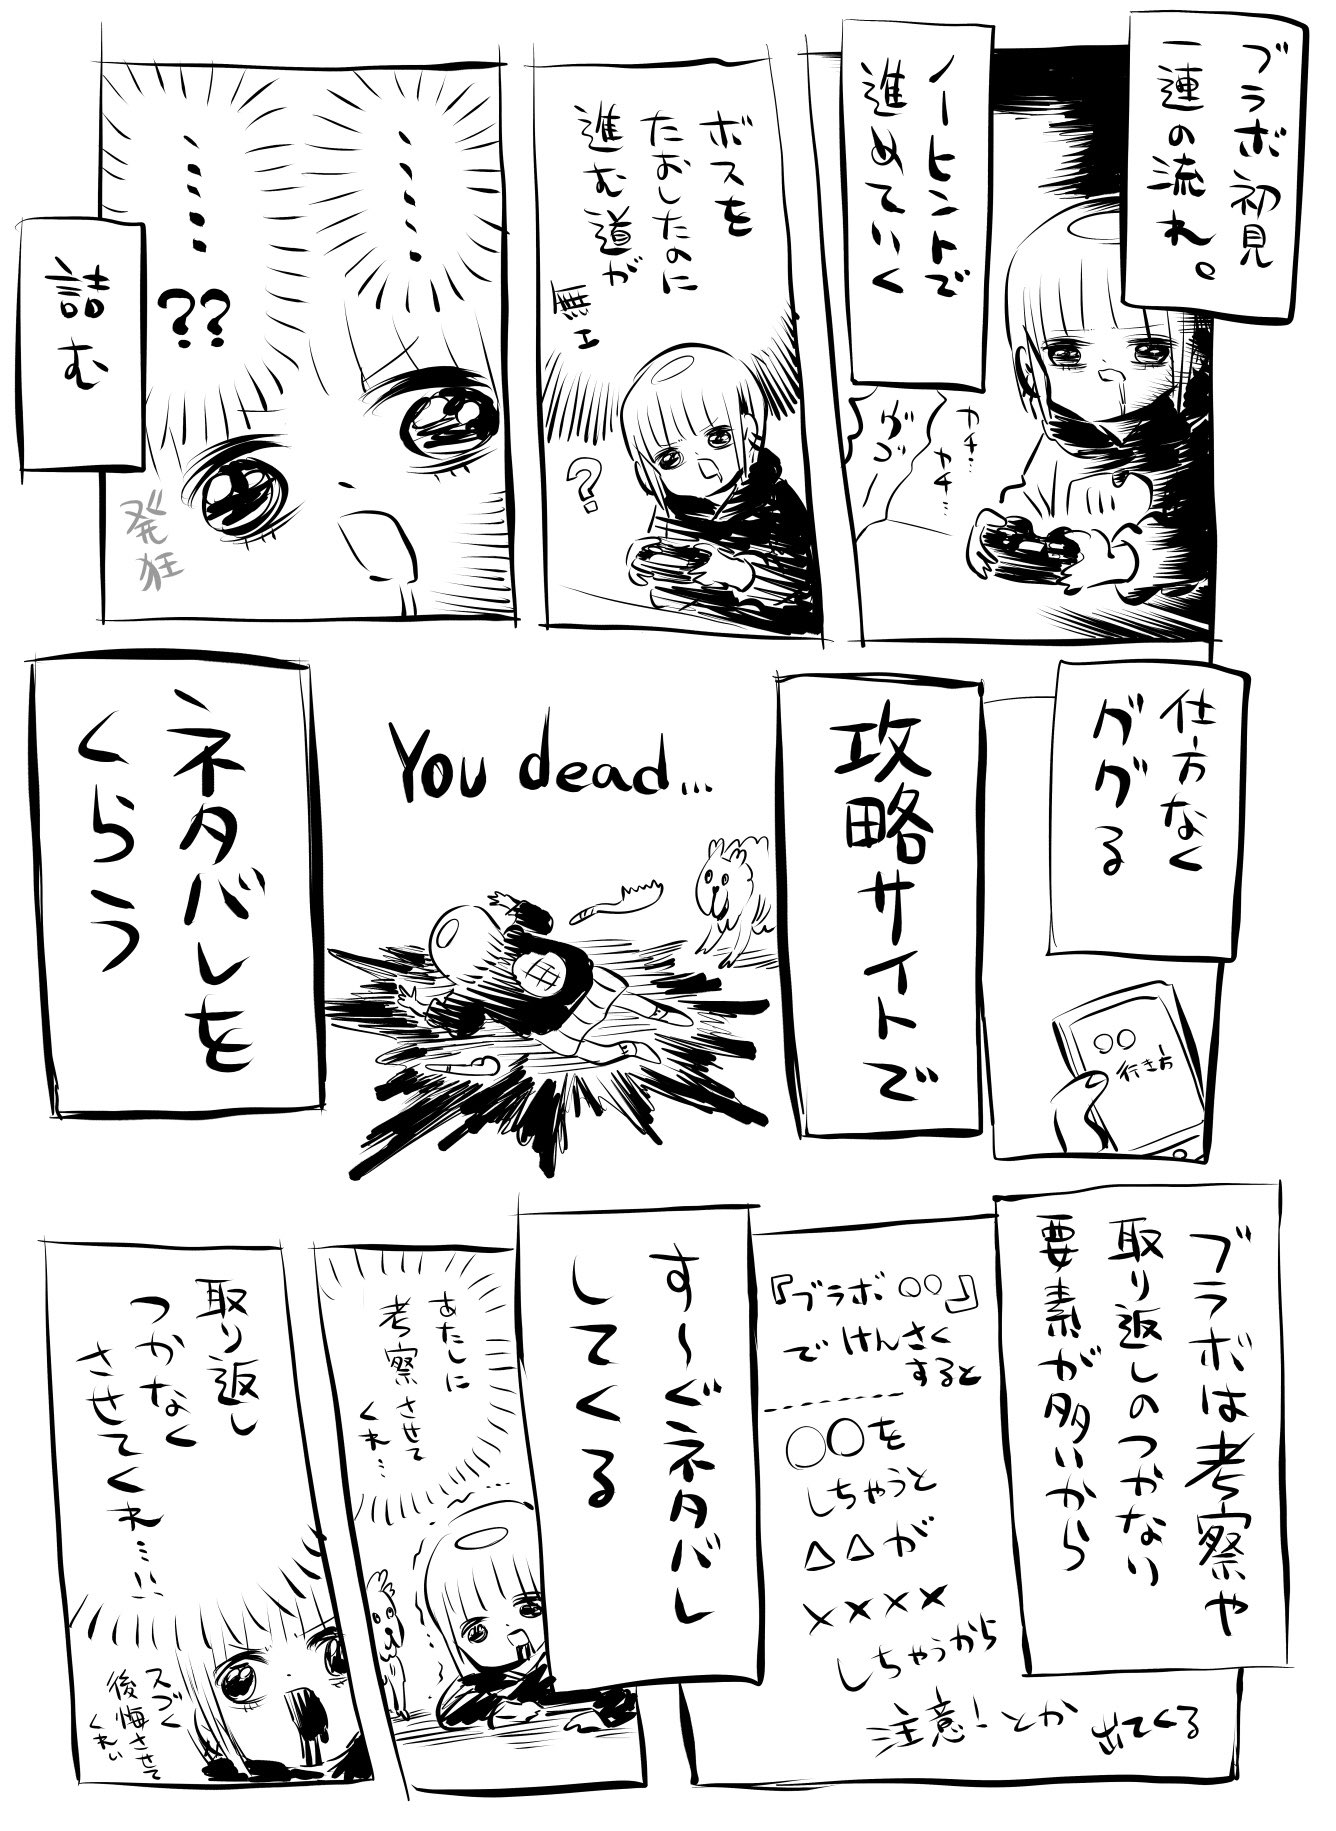 ブラボ初見
一連の流れ。
ノーヒントで
進めていく
カチ…
カチ…
グゴ
ボスを
たおしたのに
進む道が
無エ
?
・・・・・
・・・・・
??
発狂
詰む
仕方なく
ググる
○○
行き方
攻略サイトで
You dead...
ネタバレを
くらう
ブラボは考察や
取り返しのつかない
要素が多いから
『ブラボ○○』
でけんさく
すると
○○を
しちゃうと
△△が
××××
しちゃうから
注意!とか
出てくる
す〜ぐネタバレ
してくる
あたしに
考察させて
くれ…
取り返し
つかなく
させてくれ……
スゴく
後悔させて
くれい